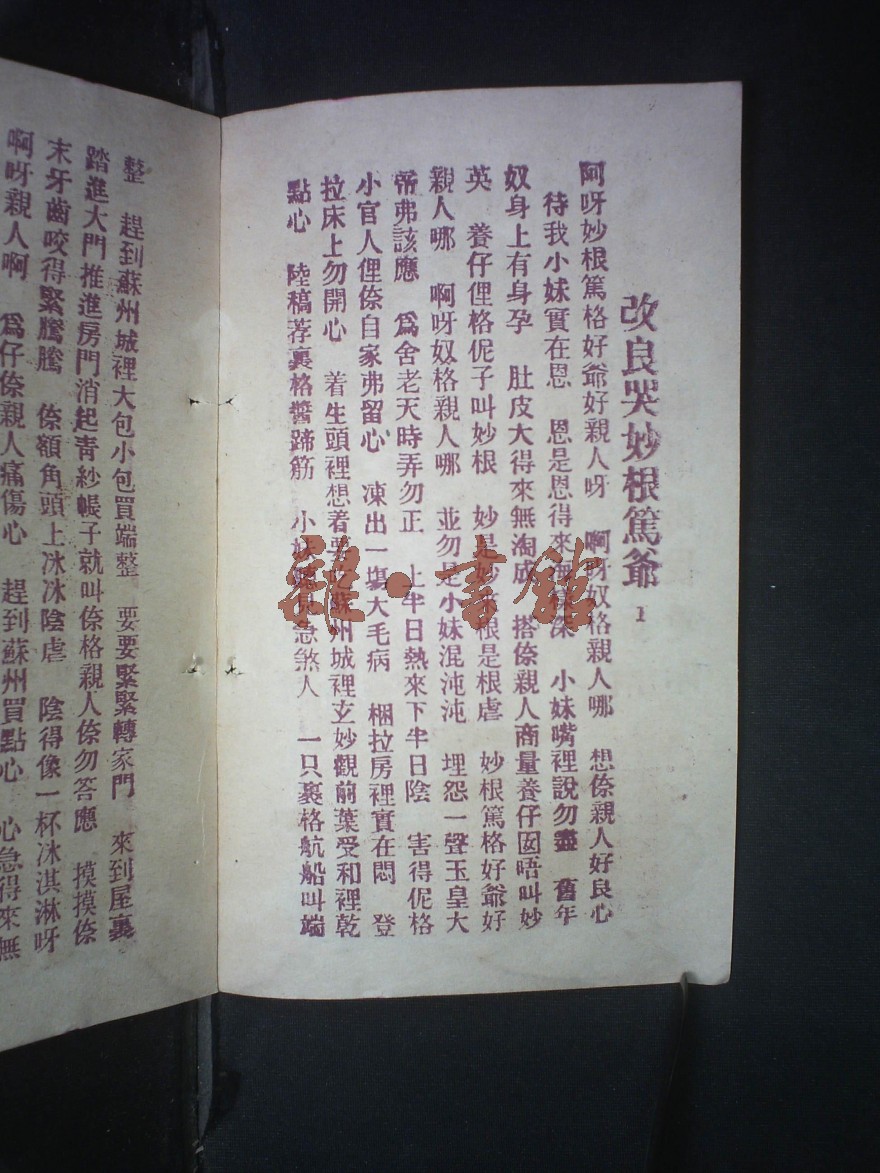 改良哭妙根篤爺 1
阿呀妙根篤格好爺好親人呀 啊呀奴格親人哪 想倷親人好良心
待我小妹實在恩 恩是恩得來海樣深 小妹嘴裡說勿盡 舊年
奴身上有身孕 肚皮大得來無淘成 搭倷親人商量養仔囡唔叫妙
英 養仔俚格伲子叫妙根 妙是妙來根是根虐 妙根篤格好爺好
親人哪 啊呀奴格親人哪 並勿是小妹混沌沌 埋怨一聲玉皇大
帝弗該應 爲舍老天時弄勿正 上半日熱來下半日陰 害得伲格
小官人俚倷自家弗留心 凍出一塲大毛病 梱拉房裡實在悶 登
拉床上勿開心 着生頭裡想着要吃蘇州城裡玄妙觀前葉受和裡乾
點心 陸稿荐裏格醬蹄筋 小妹聽見急煞人 一只裹格航船叫端
整 趕到蘇州城裡大包小包買端整 要要緊緊轉家門 來到屋裏
踏進大門推進房門消起青紗帳子就叫倷格親人倷勿答應 摸摸倷
末牙齒咬得緊騰騰 倷額角頭上冰冰陰虐 陰得像一杯冰淇淋呀
啊呀親人啊 爲仔倷親人痛傷心 趕到蘇州買點心 心急得來無
雜·書館